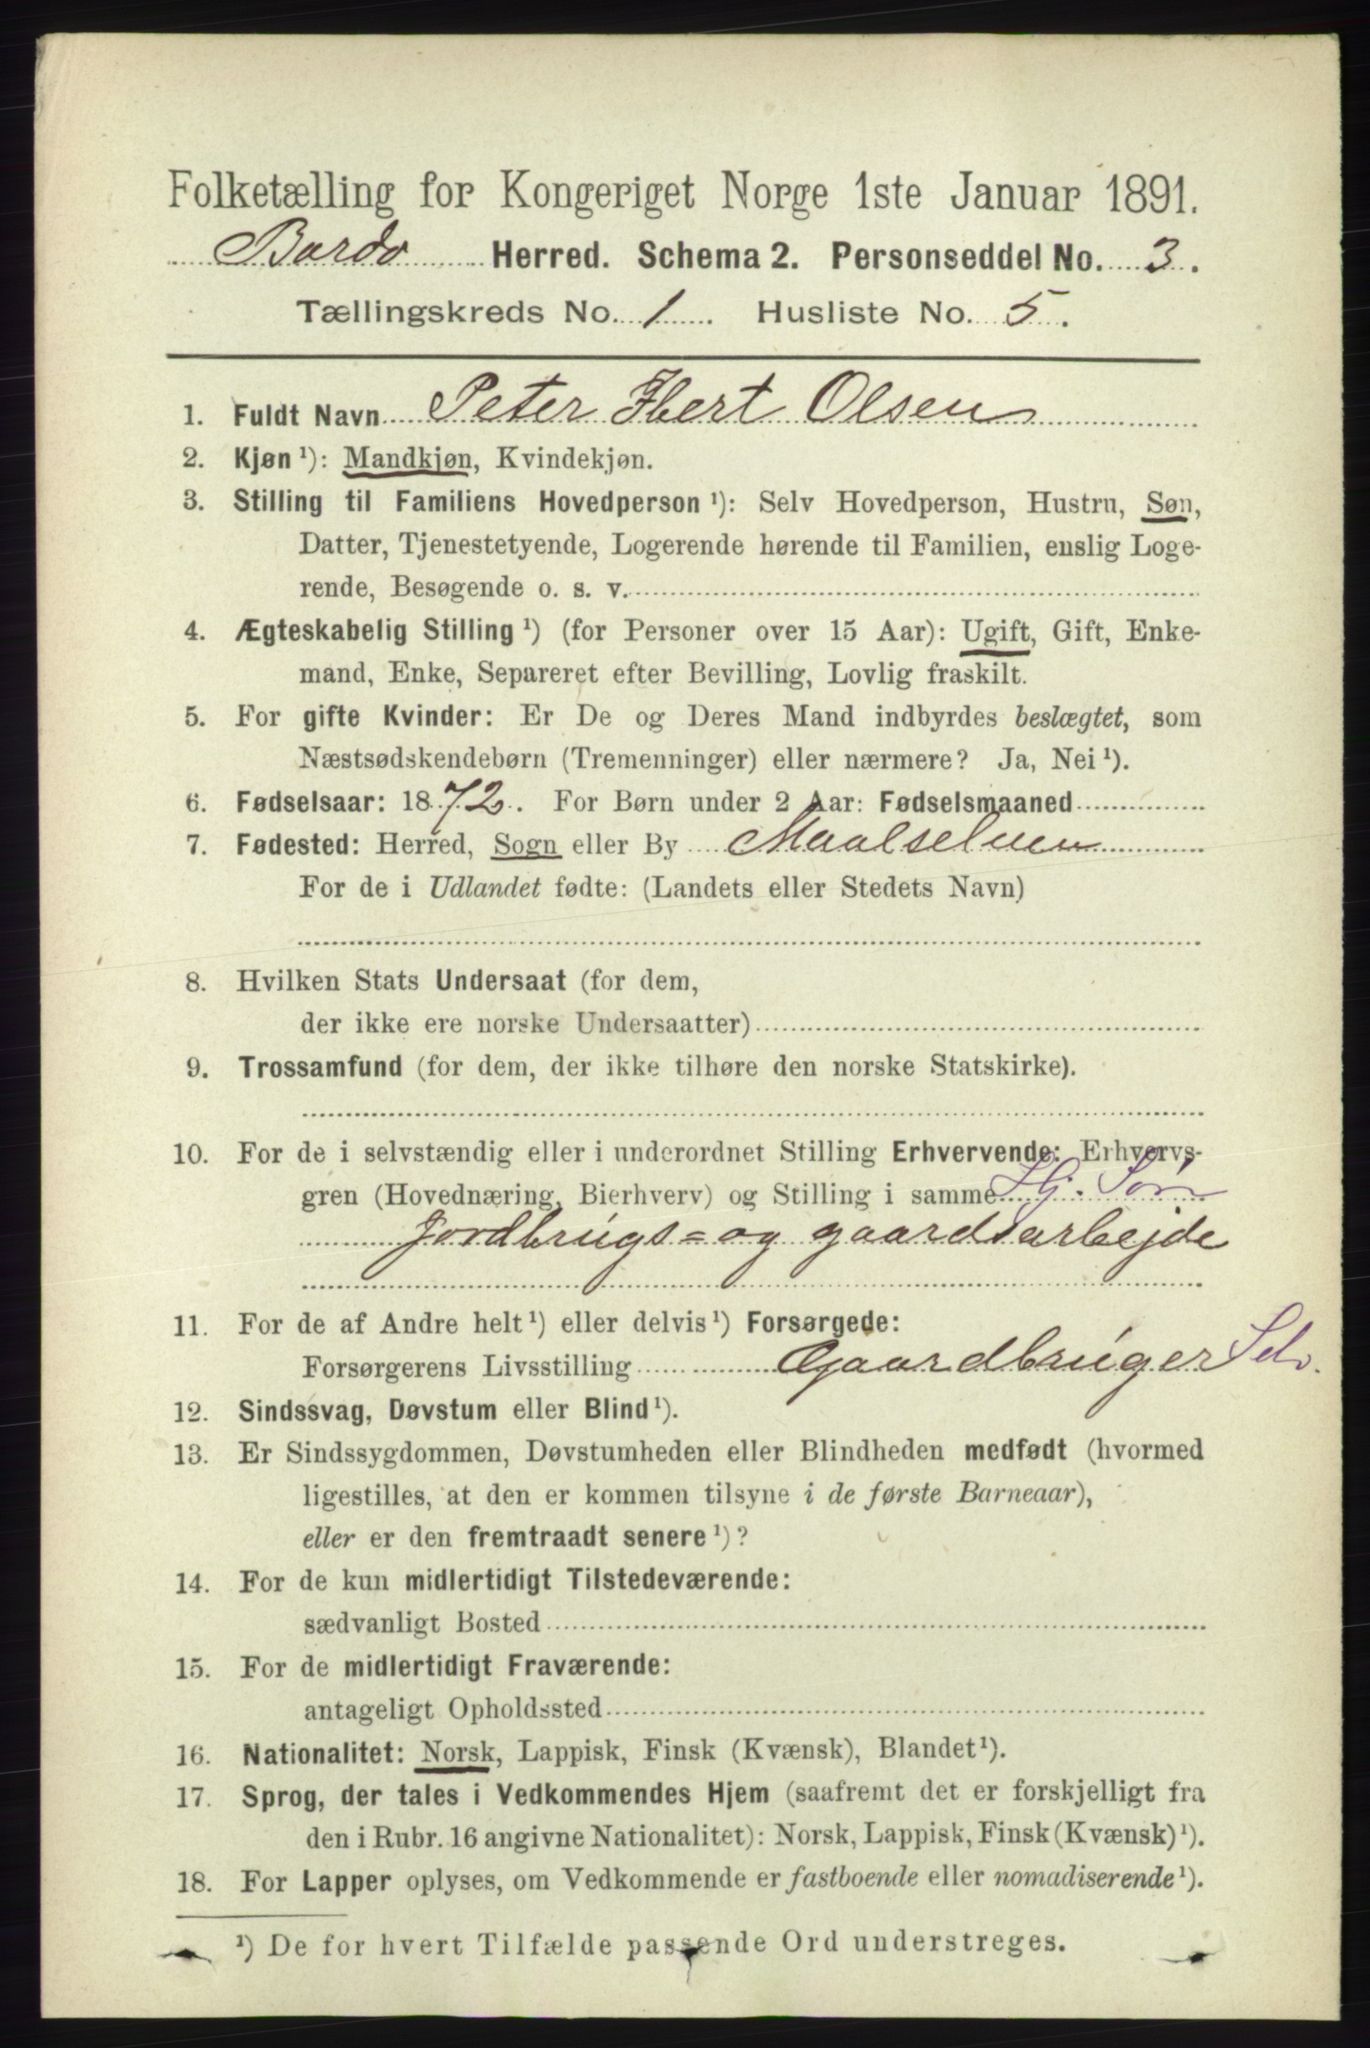 Folketælling for Kongeriget Norge 1ste Januar 1891.
Bardo Herred. Schema 2. Personseddel No. 3.
Tællingskreds No. 1. Husliste No. 5.
1. Fuldt Navn Peter Hbert Olsen
2. Kjøn ¹): Mandkjøn, Kvindekjøn.
3. Stilling til Familiens Hovedperson ¹): Selv Hovedperson, Hustru, Søn,
Datter, Tjenestetyende, Logerende hørende til Familien, enslig Loge-
rende, Besøgende o. s. v.
4. Ægteskabelig Stilling ¹) (for Personer over 15 Aar): Ugift, Gift, Enke-
mand, Enke, Separeret efter Bevilling, Lovlig fraskilt.
5. For gifte Kvinder: Er De og Deres Mand indbyrdes beslægtet, som
Næstsødskendebørn (Tremenninger) eller nærmere? Ja, Nei ¹).
6. Fødselsaar: 1872. For Børn under 2 Aar: Fødselsmaaned
7. Fødested: Herred, Sogn eller By Maalselven
For de i Udlandet fødte: (Landets eller Stedets Navn)
8. Hvilken Stats Undersaat (for dem,
der ikke ere norske Undersaatter)
9. Trossamfund (for dem, der ikke tilhøre den norske Statskirke).
10. For de i selvstændig eller i underordnet Stilling Erhvervende: Erhvervs-
gren (Hovednæring, Bierhverv) og Stilling i samme Hj. Søn
Jordbrugs= og gaardsarbejde
11. For de af Andre helt ¹) eller delvis ¹) Forsørgede:
Forsørgerens Livsstilling Gaardbruger Selv.
12. Sindssvag, Døvstum eller Blind ¹).
13. Er Sindssygdommen, Døvstumheden eller Blindheden medfødt (hvormed
ligestilles, at den er kommen tilsyne i de første Barneaar),
eller er den fremtraadt senere ¹)?
14. For de kun midlertidigt Tilstedeværende:
sædvanligt Bosted
15. For de midlertidigt Fraværende:
antageligt Opholdssted
16. Nationalitet: Norsk, Lappisk, Finsk (Kvænsk), Blandet ¹).
17. Sprog, der tales i Vedkommendes Hjem (saafremt det er forskjelligt fra
den i Rubr. 16 angivne Nationalitet): Norsk, Lappisk, Finsk (Kvænsk) ¹).
18. For Lapper oplyses, om Vedkommende er fastboende eller nomadiserende ¹).
¹) De for hvert Tilfælde passende Ord understreges.